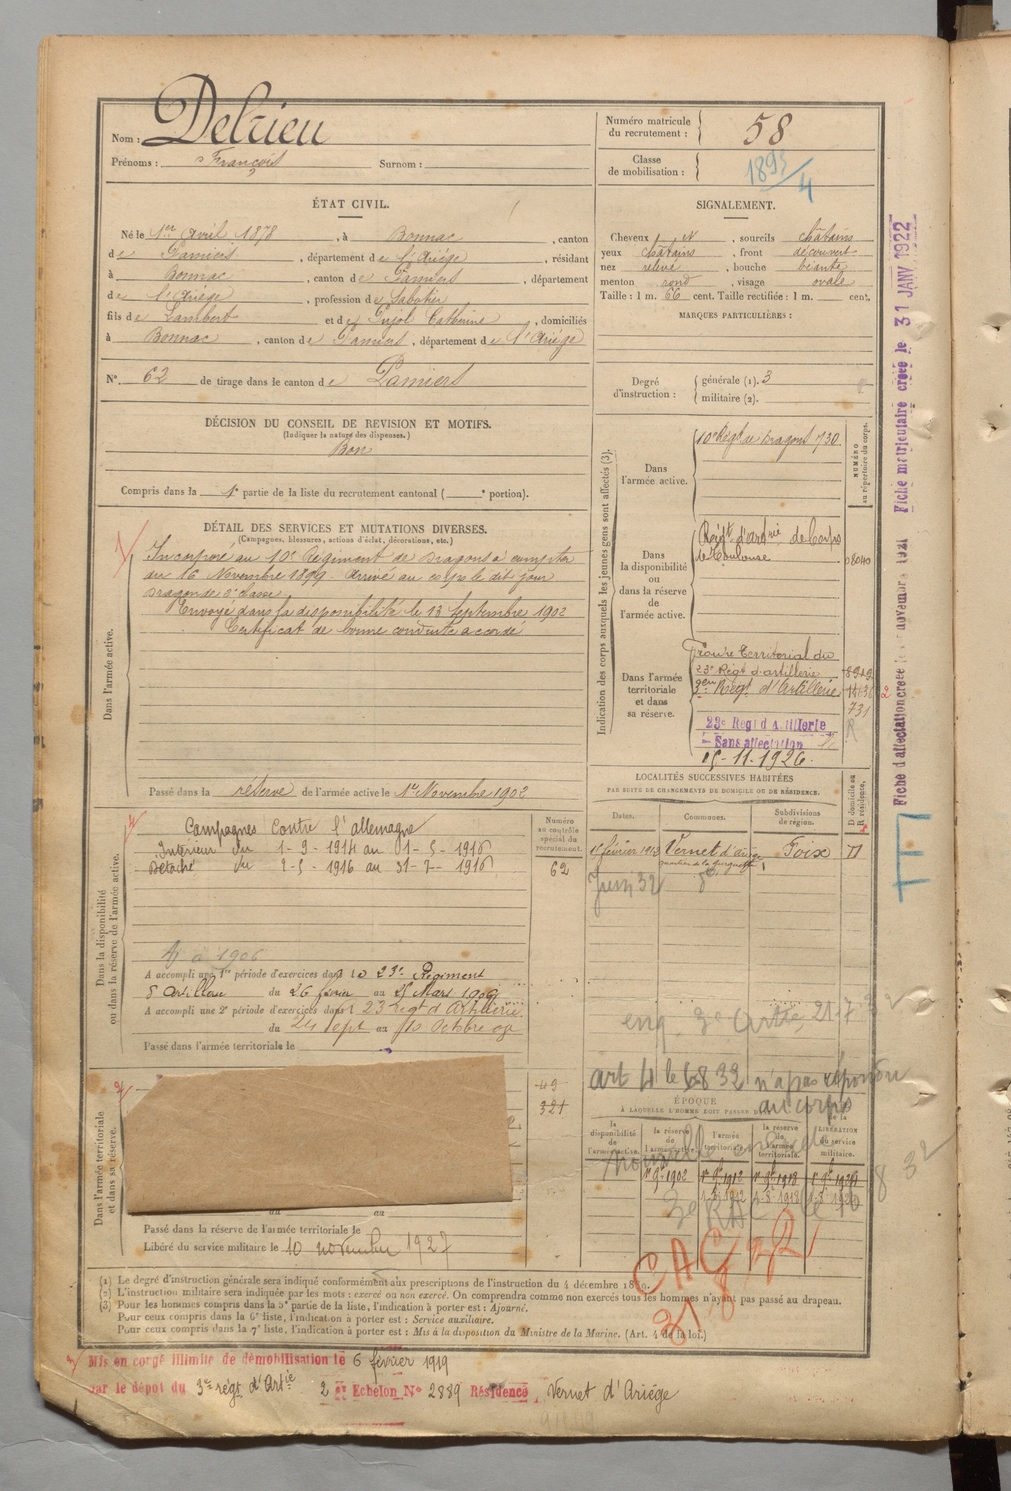 Nom : Delrieu
Prénoms : François Surnom :
Numéro matricule du recrutement : 58
Classe de mobilisation : 1895/4
ÉTAT CIVIL.
Né le 1er Avril 1878, à Bonnac, canton
de Pamiers, département de l'Ariège, résidant
à Bonnac, canton de Pamiers, département
de l'Ariège, profession de Sabotier
fils de Lambert et de Pujol Catherine, domiciliés
à Bonnac, canton de Pamiers, département de l'Ariège
N° 62 de tirage dans le canton de Pamiers
SIGNALEMENT.
Cheveux N, sourcils châtains
yeux châtains, front découvert
nez relevé, bouche béante
menton rond, visage ovale
Taille : 1 m. 66 cent. Taille rectifiée : 1 m. cent.
MARQUES PARTICULIÈRES :
Degré d'instruction : générale (1). 3
militaire (2).
DÉCISION DU CONSEIL DE REVISION ET MOTIFS.
(Indiquer la nature des dispenses.)
Bon
Compris dans la 1e partie de la liste du recrutement cantonal ( e portion).
DÉTAIL DES SERVICES ET MUTATIONS DIVERSES.
(Campagnes, blessures, actions d'éclat, décorations, etc.)
Dans l'armée active.
Incorporé au 10e Régiment de Dragons à compter
du 16 Novembre 1899. Arrivé au corps le dit jour
Dragon de 2e classe
Envoyé dans la disponibilité le 13 Septembre 1902
Certificat de bonne conduite accordé
Passé dans la réserve de l'armée active le 1er Novembre 1902
Indication des corps auxquels les jeunes gens sont affectés (3).
NUMÉRO au répertoire du corps.
Dans l'armée active.
10e Régt de Dragons 730
Dans la disponibilité ou dans la réserve de l'armée active.
Régt d'artrie de Corps
de Toulouse
08040
Dans l'armée territoriale et dans sa réserve.
Groupe Territorial du
23e Régt d'artillerie
3eme Régt d'Artillerie
731
23e Régt d'Artillerie
Sans affectation
15-11-1926.
LOCALITÉS SUCCESSIVES HABITÉES
PAR SUITE DE CHANGEMENTS DE DOMICILE OU DE RÉSIDENCE.
Dates. Communes. Subdivisions de région. D domicile ou R résidence.
février 1913 Vernet d'Ariège Foix D
Juin 32
Dans la disponibilité ou dans la réserve de l'armée active.
Numéro au contrôle spécial du recrutement.
62
Campagnes Contre l'allemagne
Intérieur du 1-9-1914 au 01-5-1916
Détaché du 2-5 1916 au 31-7-1916
Aj à 1906
A accompli une 1re période d'exercices dans le 23e Régiment
d'Artillerie du 26 février au 25 Mars 1906
A accompli une 2e période d'exercices dans l 23 régt d'Artillerie
du 24 Sept au 10 Octobre 09
Passé dans l'armée territoriale le
Dans l'armée territoriale et dans sa réserve.
49
321
3e Artie 21-7-32
art 4 le 6 8 32 n'a pas répondu
au corps
ÉPOQUE
À LAQUELLE L'HOMME DOIT PASSER DANS
la disponibilité de l'armée active. la réserve de l'armée active. l'armée territoriale. la réserve de l'armée territoriale. DATE de la LIBÉRATION du service militaire.
1er 9bre 1902 1er 9bre 1912 1er 9bre 1918
1-8 1912 1-8 1918
8 32
3e RAC le 10
CAC
du au
Passé dans la réserve de l'armée territoriale le
Libéré du service militaire le 10 novembre 1927
(1) Le degré d'instruction générale sera indiqué conformément aux prescriptions de l'instruction du 4 décembre 1889.
(2) L'instruction militaire sera indiquée par les mots : exercé ou non exercé. On comprendra comme non exercés tous les hommes n'ayant pas passé au drapeau.
(3) Pour les hommes compris dans la 5e partie de la liste, l'indication à porter est : Ajourné.
Pour ceux compris dans la 6e liste, l'indication à porter est : Service auxiliaire.
Pour ceux compris dans la 7e liste, l'indication à porter est : Mis à la disposition du Ministre de la Marine. (Art. 4 de la loi.)
Mis en congé illimité de démobilisation le 6 février 1919
par le dépôt du 3e régt d'Artie 2 et Echelon N° 2889 Résidence, Vernet d'Ariége
Fiche d'affectation créée le novembre 1921 Fiche matriculaire créée le 31 JANV 1922